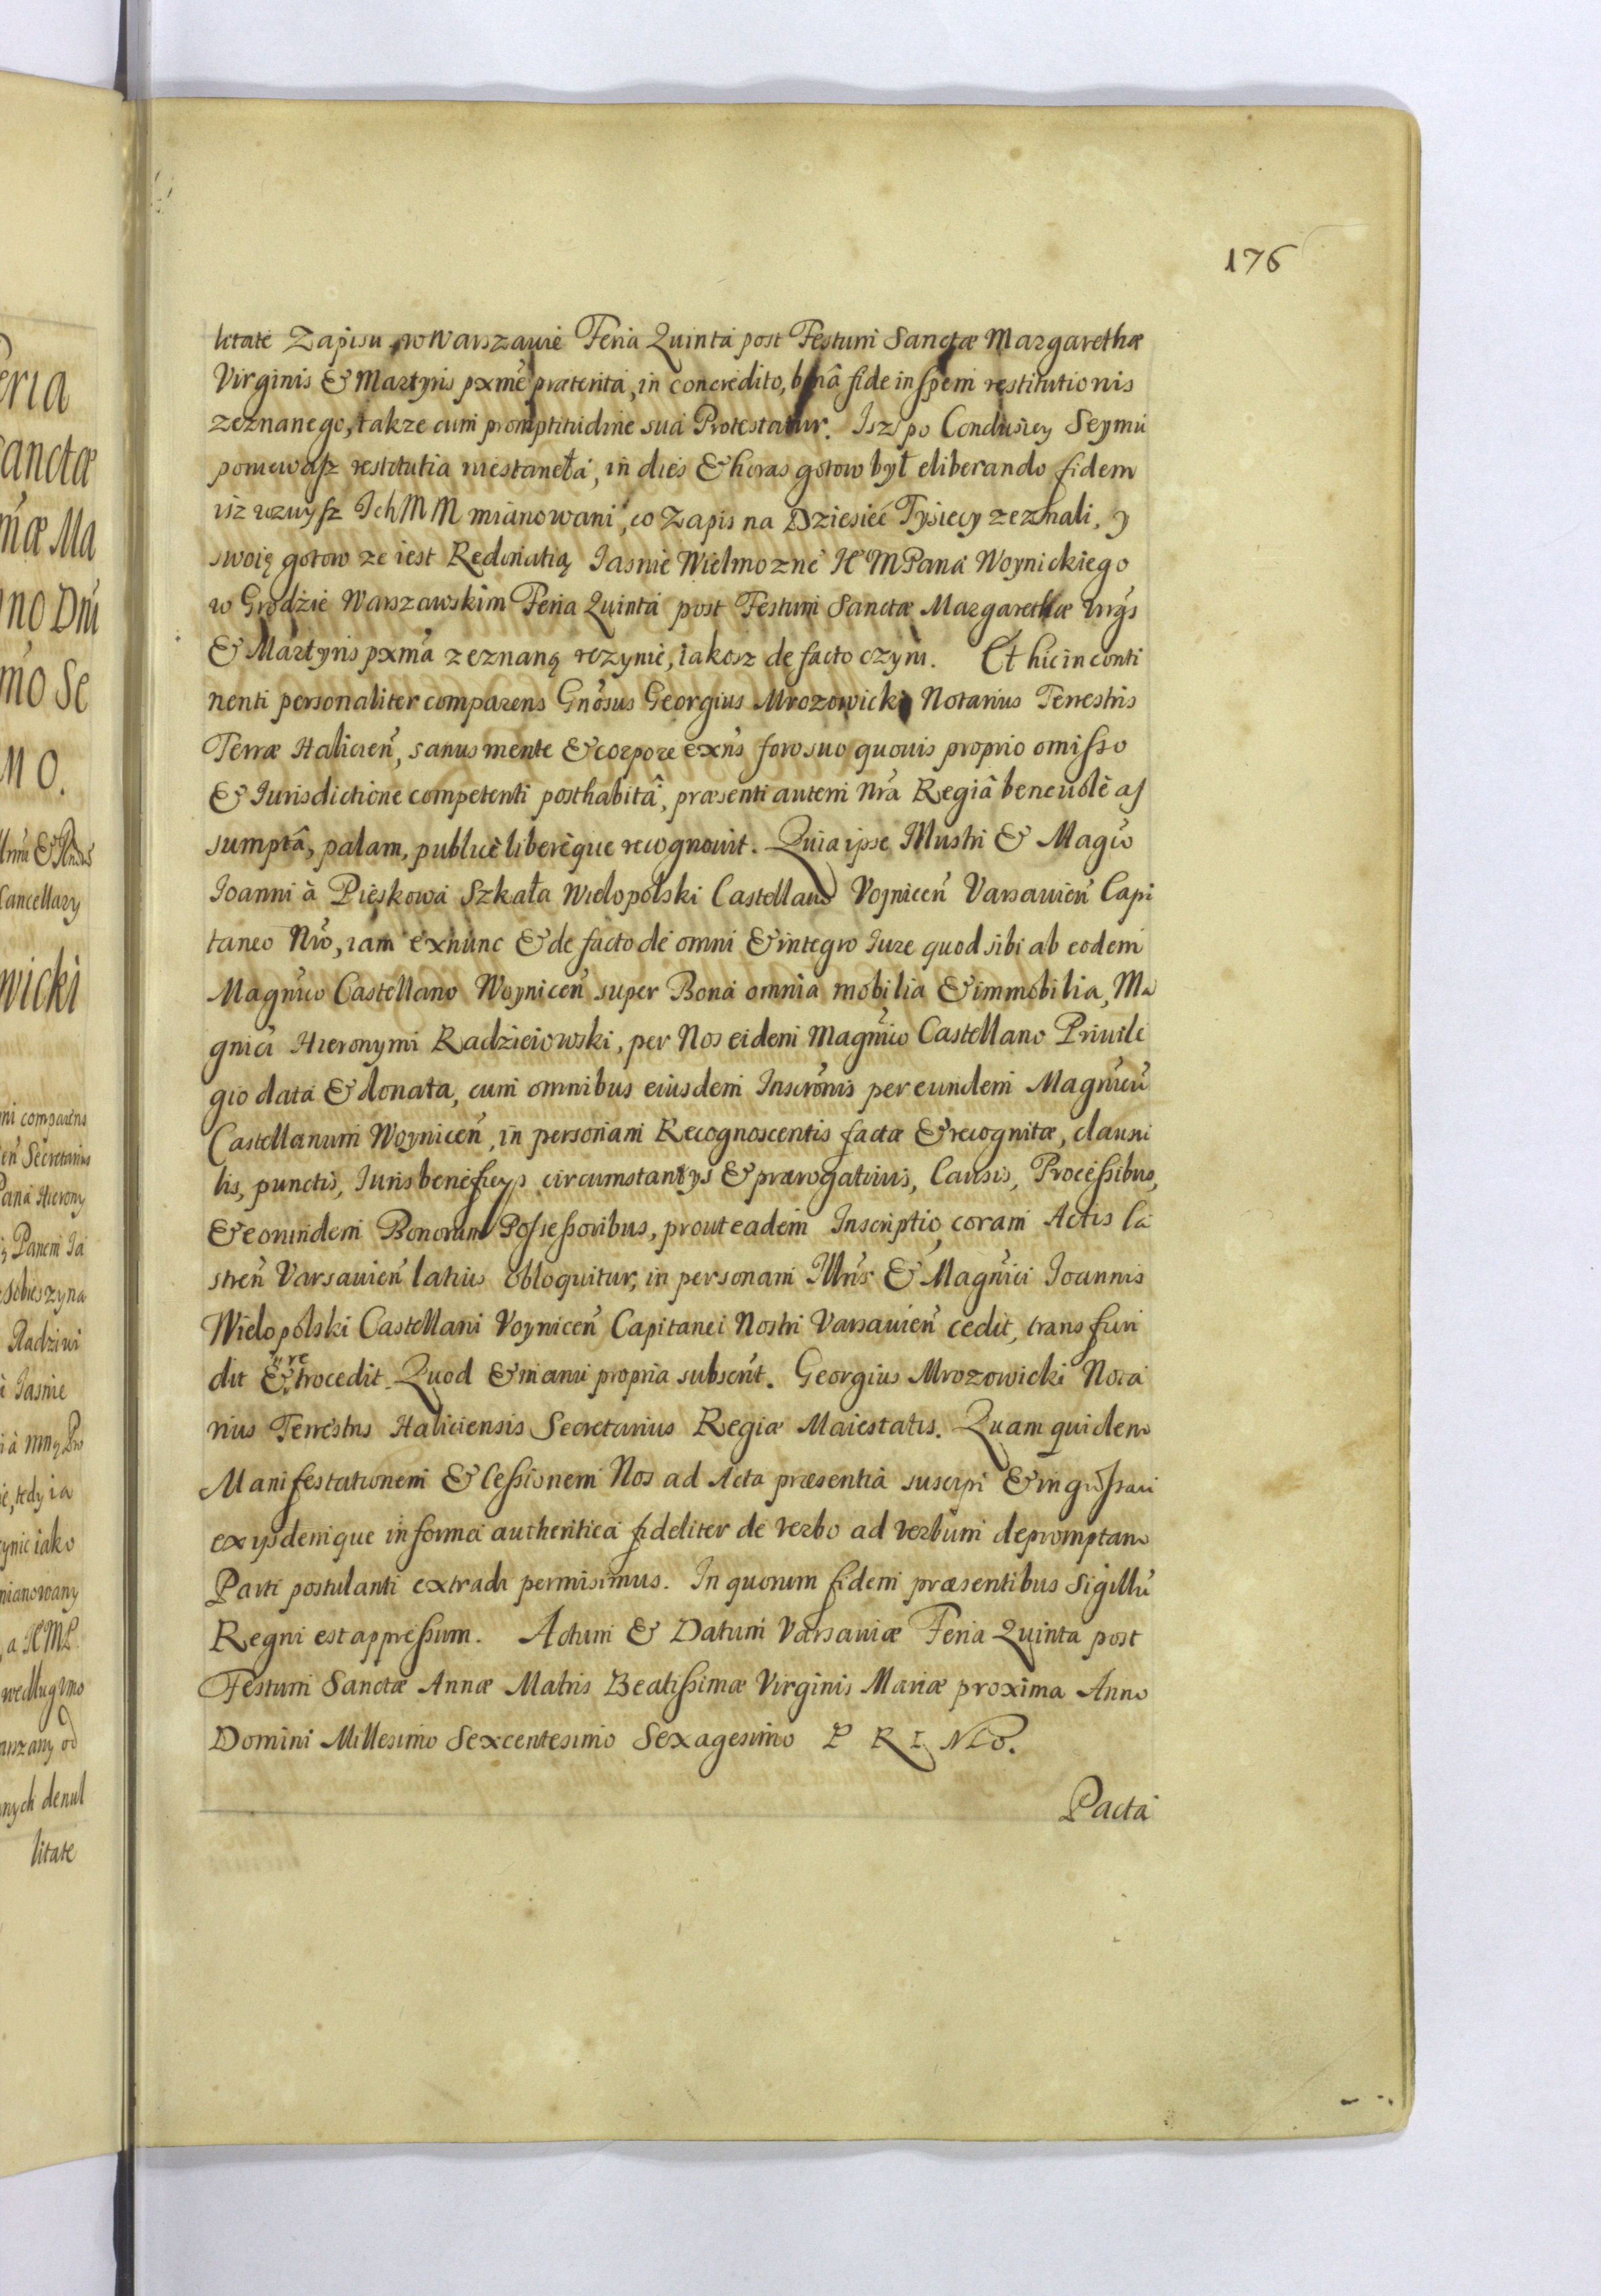 176
litate Zapisu, w Warszawie Feria Quinta post Festum Sanctæ Margarethæ
Virginis & Martyris pxme præterita, in concredito, bona fide in spem restitutionis
zeznanego, takze cum promptitudine sua Protestatur. Isz po Conclusiey Seymu
poniewasz restitutia niestaneła, in dies & horas gotow był eliberando fidem
isz wzwysz IchMM mianowani, co Zapis na Dziesięć Tysięcy zeznali, y
swoię gotow ze iest Redonatią Iasnie Wielmozne IeMPana Woynickiego
w Grodzie Warszawskim Feria Quinta post Festum Sanctæ Margarethæ Vrgs
& Martyris pxma zeznaną rczynie, iakosz de facto czyni. Et hic in conti
nenti personaliter comparens Gnosus Georgius Mrozowicki Notarius Terrestris
Terræ Halicien, sanus mente & corpore exns foro suo quouis proprio omisso
& Iurisdictione competenti posthabitâ, præsenti autem Nrâ Regiâ beneuolè as
sumptâ, palam, publicè liberèque recognouit. Quia ipse Illustri & Magco
Ioanni à Pieskowa Szkała Wielopolski Castellano Voynicen Varsauien Capi
taneo Nro, iam exnunc & de facto de omni & integro Iure quod sibi ab eodem
Magnico Castellano Woynicen super Bona omnia mobilia & immobilia, Ma
gnici Hieronymi Radzieiowski, per Nos eidem Magnico Castellano Priuile
gio data & donata, cum omnibus eiusdem Inscronis per eundem Magnicu
Castellanum Woynicen, in personam Recognoscentis factæ & recognitæ, clausu
lis, punctis, Iuris beneficys circumstantys & prærogatiuis, Causis, Processibus,
& eorundem Bonorum Possessoribus, prout eadem Inscriptio coram Actis Ca
stren Varsauien latius obloquitur, in personam Illris & Magnici Ioannis
Wielopolski Castellani Voynicen Capitanei Nostri Varsauien cedit, transfun
dit & retrocedit. Quod & manu propria subscrit. Georgius Mrozowicki Nota
rius Terrestris Haliciensis Secretarius Regiæ Maiestatis. Quam quidem
Manifestationem & Cessionem Nos ad Acta præsentia suscipi & ingrossari
exysdemque in forma authentica fideliter de verbo ad verbum depromptam
Parti postulanti extradi permisimus. In quorum fidem præsentibus Sigillu
Regni est appressum. Actum & Datum Varsauiæ Feria Quinta post
Festum Sanctæ Annæ Matris Beatissimæ Virginis Mariæ proxima Anno
Domini Millesimo Sexcentesimo Sexagesimo PRIMO.
Pacta